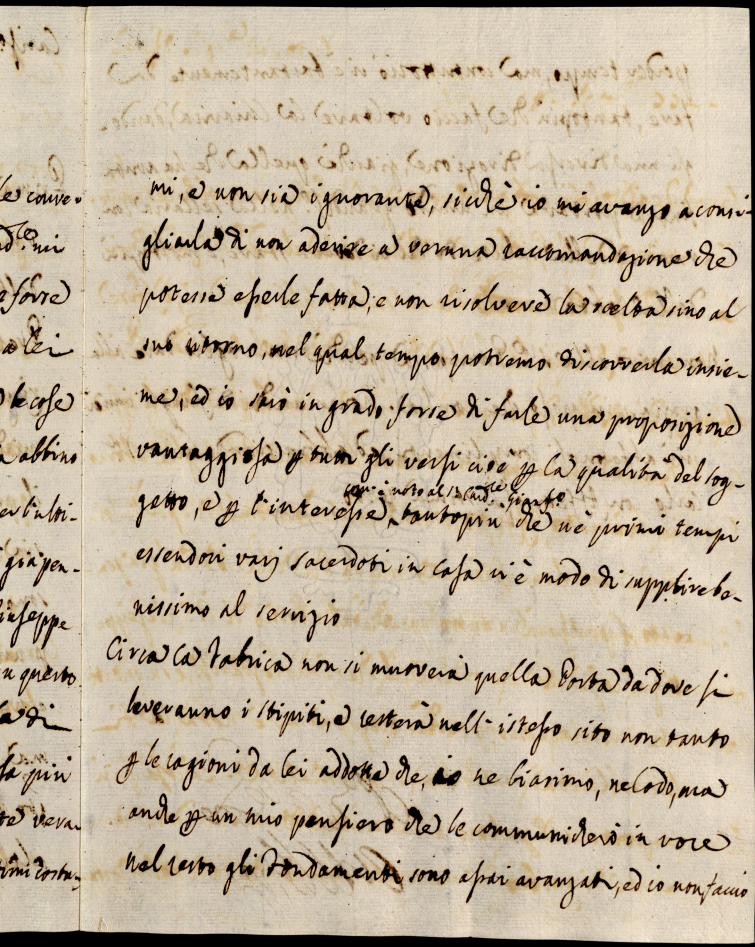 le conve-
mi
e forse
a lei
le cose
abbino
l'ulti-
già pen-
Giuseppe
questo
la di
più
vera-
costu-
mi, e non sia ignorante, sichè io mi avanzo a consi-
gliarla di non aderire a veruna raccomandazione che
potesse esserle fatta, e non risolvere la scelta sino al
suo ritorno, nel qual tempo potremo discorrerla insie-
me, ed io sarò in grado forse di farle una proposizione
vantaggiosa p tutti gli versi cioè p la qualità del sog-
getto, e p l'interesse, tantopiù che ne primi tempi
è noto al S. Card.le
essendovi varj sacerdoti in casa vi è modo di supplire be-
nissimo al servizio
Circa la Fabrica non si muoverà quella Porta da dove si
leveranno i stipiti, e resterà nell'istesso sito non tanto
p le cagioni da lei addotte che, io ne biasimo, ne lodo, ma
anche p un mio pensiero che le communicherò in voce
nel resto gli Fondamenti sono assai avanzati, ed io non faccio